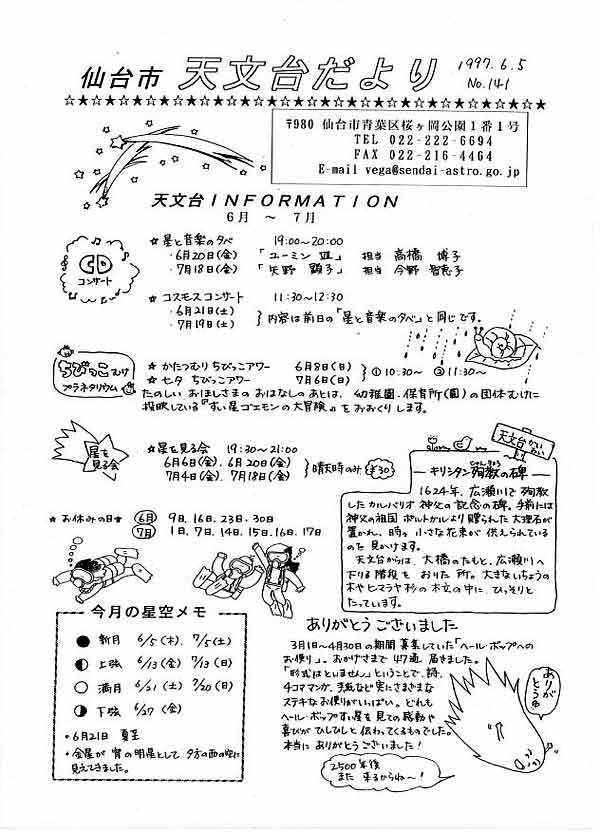 仙台市 天文台だより 1997.6.5
No.141
〒980 仙台市青葉区桜ヶ岡公園1番1号
TEL 022-222-6694
FAX 022-216-4464
E-mail vega@sendai-astro.go.jp
天文台INFORMATION
6月 ~ 7月
CD
コンサート
☆ 星と音楽の夕べ 19:00~20:00
・6月20日(金) 「ユーミン Ⅲ」 担当 高橋 博子
・7月18日(金) 「矢野 顕子」 担当 今野 智恵子
☆ コスモスコンサート 11:30~12:30
・6月21日(土)
・7月19日(土)
内容は前日の「星と音楽の夕べ」と同じです。
ちびっこむけ
プラネタリウム
☆ かたつむり ちびっこアワー 6月8日(日)
☆ 七夕 ちびっこアワー 7月6日(日)
① 10:30~ ② 11:30~
たのしい おほしさまの おはなしのあとは、幼稚園・保育所(園)の団体むけに
投映している『すい星ゴエモンの大冒険』をおおくりします。
星を
見る会
☆ 星を見る会 19:30~21:00
6月6日(金)、6月20日(金)
7月4日(金)、7月18日(金)
晴天時のみ ¥30
★ お休みの日★ 6月 9日、16日、23日、30日
7月 1日、7日、14日、15日、16日、17日
天文台かいわい
キリシタン殉教の碑
じゅんきょう
1624年、広瀬川で殉教
したカルバリオ神父の記念の碑。手前には
神父の祖国ポルトガルより贈られた大理石が
置かれ、時々小さな花束が供えられている
のを見かけます。
天文台からは、大橋のたもと、広瀬川へ
下りる階段を おりた所。大きないちょうの
木やヒマラヤ杉の木立の中に、ひっそりと
たっています。
今月の星空メモ
新月 6/5(木)、7/5(土)
上弦 6/13(金) 7/13(日)
満月 6/21(土) 7/20(日)
下弦 6/27(金)
・6月21日 夏至
・金星が宵の明星として 夕方の西の空に
見えてきました。
ありがとうございました
3月1日~4月30日の期間募集していた「ヘール・ボップへの
お便り」。おかげさまで 47通 届きました。
「形式はといません」ということで、詩、
4コママンガ、手紙など実にさまざまな
ステキなお便りがいっぱい。どれも
ヘール・ボップすい星を見ての感動や
喜びが ひしひしと伝わってくるものでした。
本当に ありがとうございました!
ありが
とう
2500年後
また 来るからね~!